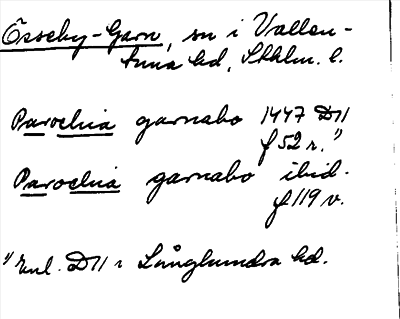 Össeby-Garn, sn i Vallen-
tuna hd, Sthlm. l.
Parochia garnabo 1447 D11
f 52 r. 1)
Parochia garnabo ibid.
f 119 v.
1) Enl. D11 r Långhundra hd.